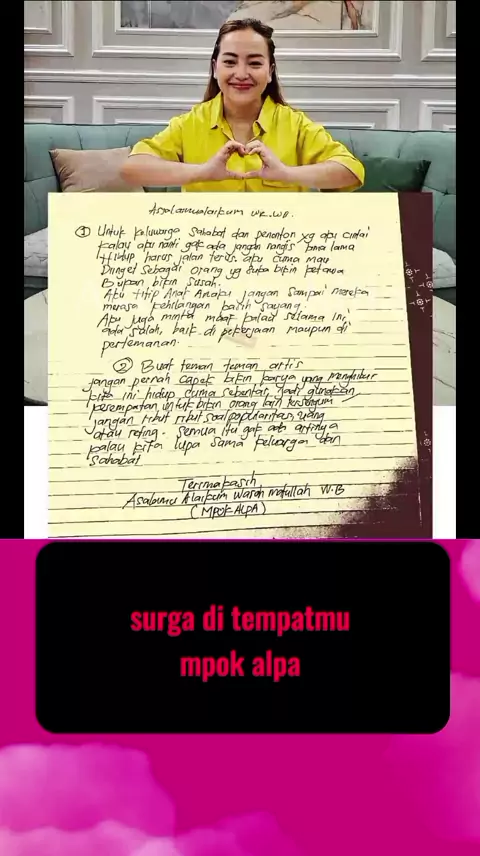 Asalamualaikum WR.WB.
① Untuk keluwarga Sahabat dan penonton yg aku cintai
kalau aku nanti gak ada jangan nangis lama lama
Hidup harus jalan terus. aku cuma mau
Dinget sebagai orang yg suka bikin ketawa
Bukan bikin susah.
Aku titip Anak Anaku jangan sampai mereka
merasa kehilangan kasih sayang.
Aku juga minta maaf kalau selama ini
ada salah, baik di pekerjaan maupun di
pertemanan.
② Buat teman teman artis
jangan pernah capek bikin karya yang menghibur
kita ini hidup cuma sebentar, jadi gunakan
kesempatan untuk bikin orang lain tersenyum
jangan ribut ribut soal popularitas, uang
atau reting. Semua itu gak ada artinya
kalau kita lupa sama keluarga dan
Sahabat
Terimakasih
Asalamu Alaikum Warah matullah W.B
(MPOK ALPA)
surga di tempatmu
mpok alpa